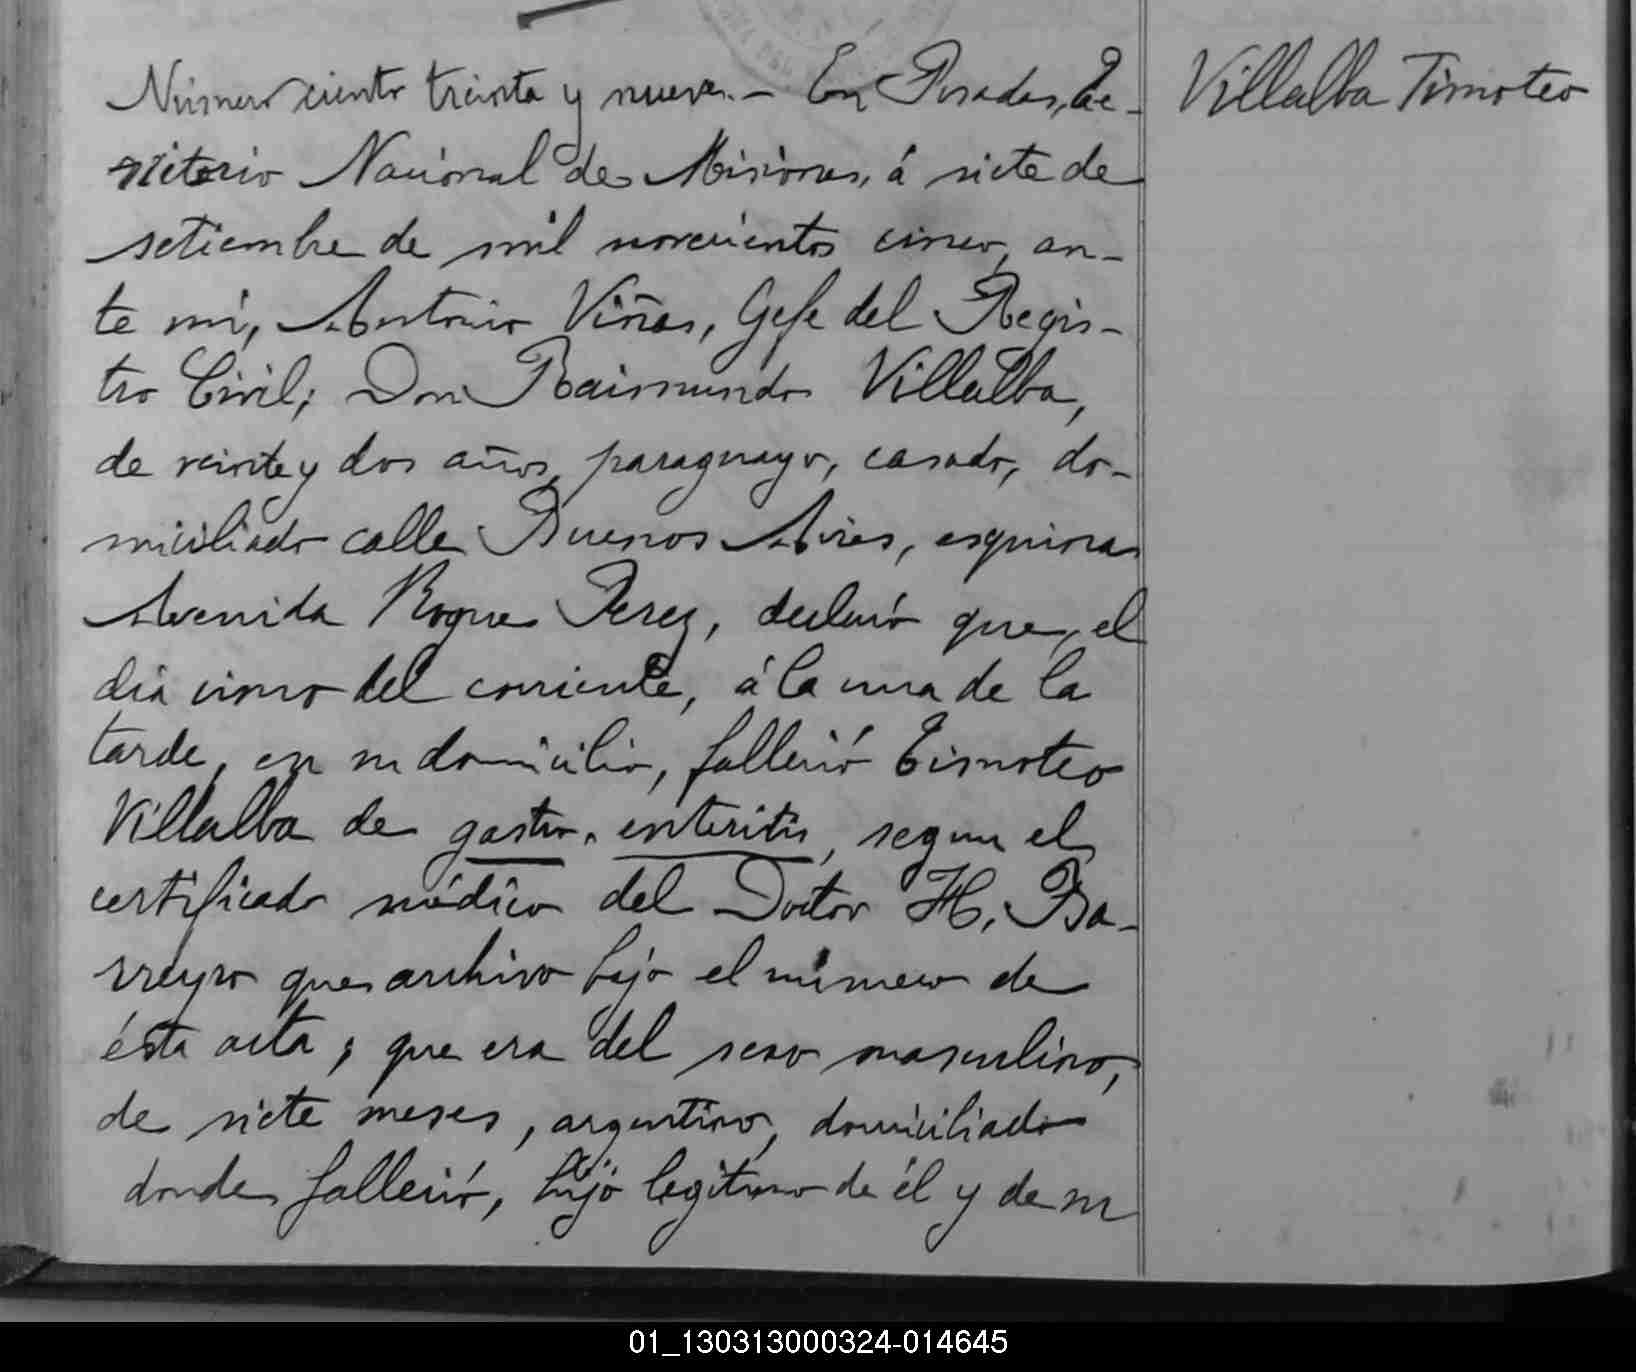 Número ciento treinta y nueve.- En Posadas, Te-
rritorio Nacional de Misiones, á siete de
setiembre de mil novecientos cinco, an-
te mi, Antonio Viñas, Gefe del Regis-
tro Civil; Don Raimundo Villalba,
de veinte y dos años, paraguayo, casado, do-
miciliado calle Buenos Aires, esquina
Avenida Roque Perez, declaró que, el
dia cinco del corriente, á la una de la
tarde, en su domicilio, falleció Timoteo
Villalba de gastro-enteritis, segun el
certificado médico del Doctor H. Ba-
rreyro que archivo bajo el número de
ésta acta; que era del sexo masculino,
de siete meses, argentino, domiciliado
donde falleció, hijo legitimo de él y de su
Villalba Timoteo
01_130313000324-014645